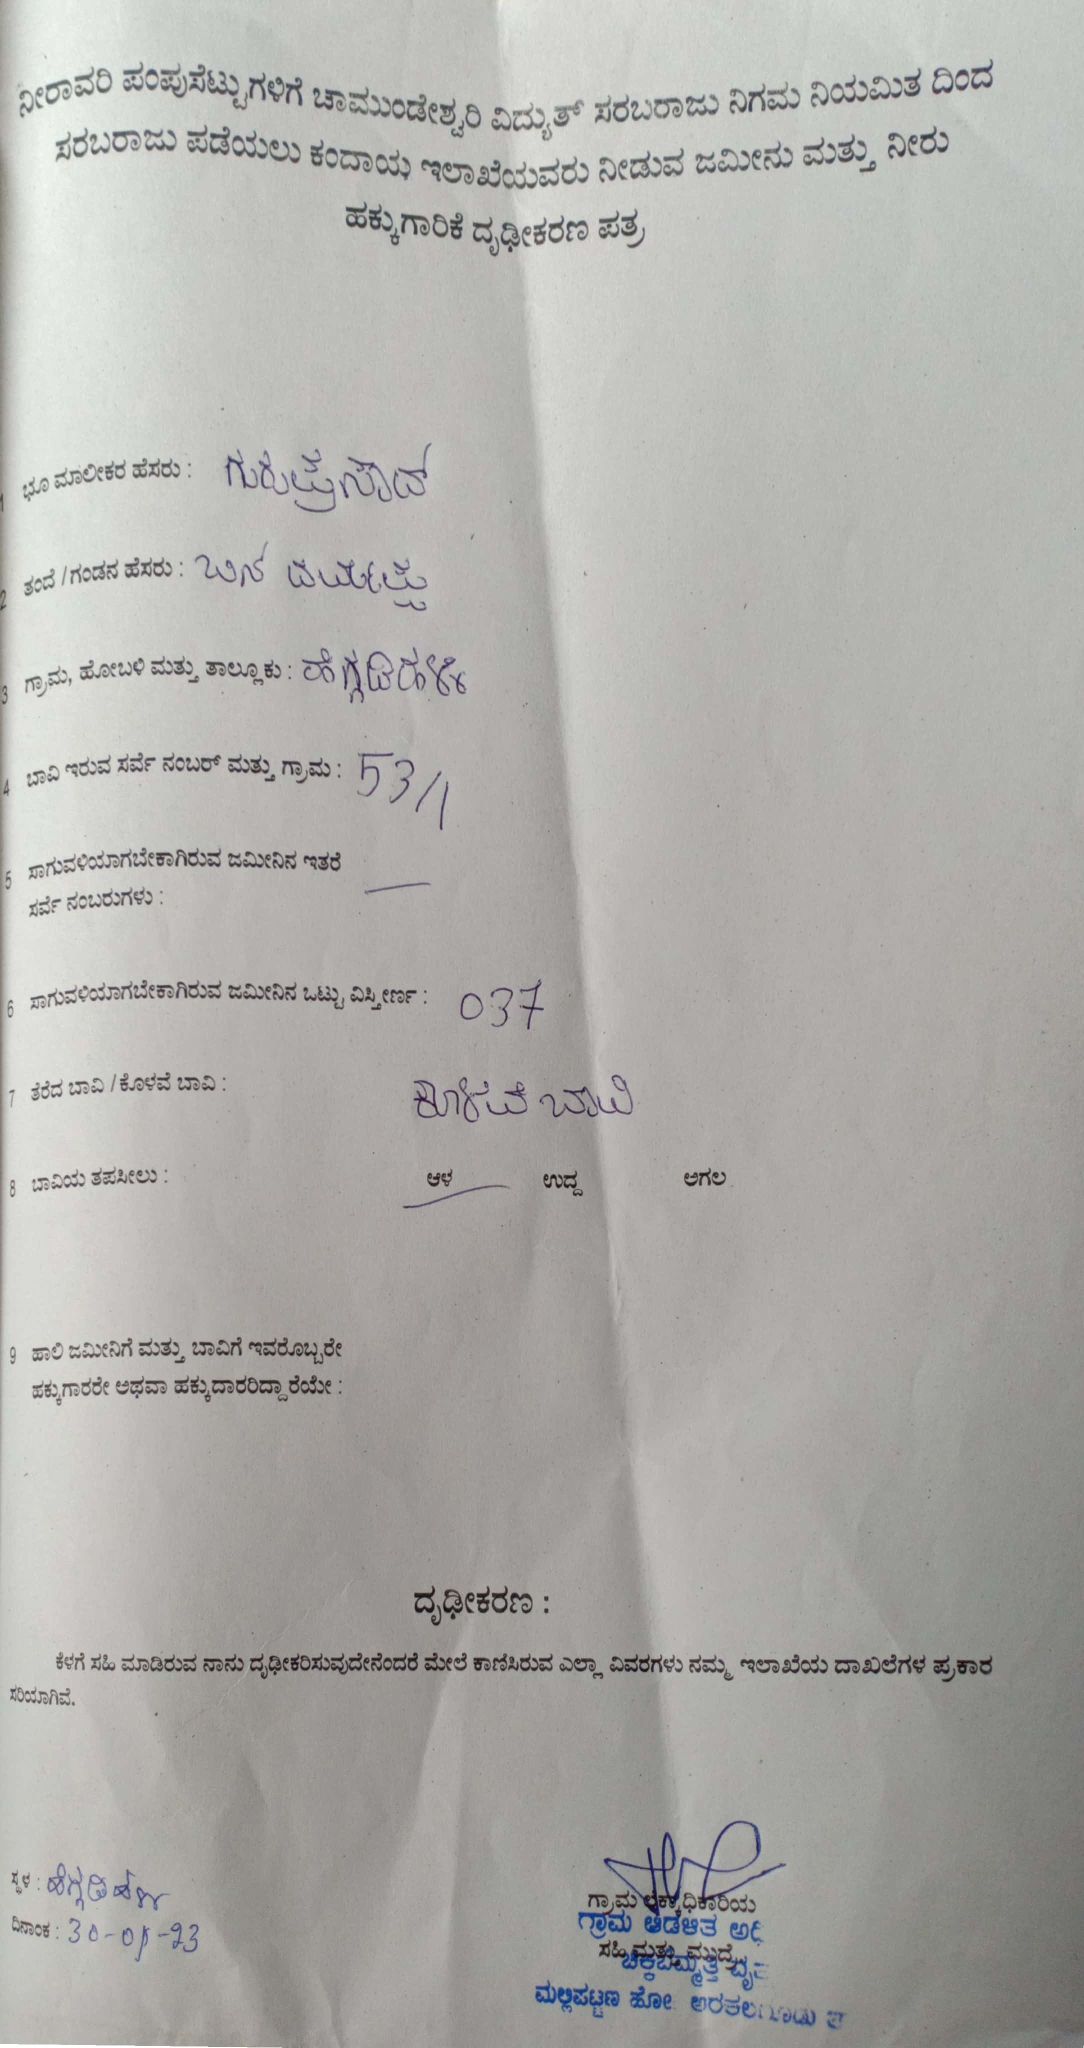 ನೀರಾವರಿ ಪಂಪುಸೆಟ್ಟುಗಳಿಗೆ ಚಾಮುಂಡೇಶ್ವರಿ ವಿದ್ಯುತ್ ಸರಬರಾಜು ನಿಗಮ ನಿಯಮಿತ ದಿಂದ
ಸರಬರಾಜು ಪಡೆಯಲು ಕಂದಾಯ ಇಲಾಖೆಯವರು ನೀಡುವ ಜಮೀನು ಮತ್ತು ನೀರು
ಹಕ್ಕುಗಾರಿಕೆ ದೃಢೀಕರಣ ಪತ್ರ
1 ಭೂ ಮಾಲೀಕರ ಹೆಸರು : ಗುರುಪ್ರಸಾದ್
2 ತಂದೆ / ಗಂಡನ ಹೆಸರು : ಬಿನ್
3 ಗ್ರಾಮ, ಹೋಬಳಿ ಮತ್ತು ತಾಲ್ಲೂಕು : ಹೆಗ್ಗಡಿಹಳ್ಳಿ
4 ಬಾವಿ ಇರುವ ಸರ್ವೆ ನಂಬರ್ ಮತ್ತು ಗ್ರಾಮ : 53/1
5 ಸಾಗುವಳಿಯಾಗಬೇಕಾಗಿರುವ ಜಮೀನಿನ ಇತರೆ
ಸರ್ವೆ ನಂಬರುಗಳು : —
6 ಸಾಗುವಳಿಯಾಗಬೇಕಾಗಿರುವ ಜಮೀನಿನ ಒಟ್ಟು ವಿಸ್ತೀರ್ಣ : 037
7 ತೆರೆದ ಬಾವಿ / ಕೊಳವೆ ಬಾವಿ : ಕೊಳವೆ ಬಾವಿ
8 ಬಾವಿಯ ತಪಸೀಲು : ಆಳ ಉದ್ದ ಅಗಲ
9 ಹಾಲಿ ಜಮೀನಿಗೆ ಮತ್ತು ಬಾವಿಗೆ ಇವರೊಬ್ಬರೇ
ಹಕ್ಕುಗಾರರೇ ಅಥವಾ ಹಕ್ಕುದಾರರಿದ್ದಾರೆಯೇ :
ದೃಢೀಕರಣ :
ಕೆಳಗೆ ಸಹಿ ಮಾಡಿರುವ ನಾನು ದೃಢೀಕರಿಸುವುದೇನೆಂದರೆ ಮೇಲೆ ಕಾಣಿಸಿರುವ ಎಲ್ಲಾ ವಿವರಗಳು ನಮ್ಮ ಇಲಾಖೆಯ ದಾಖಲೆಗಳ ಪ್ರಕಾರ
ಸರಿಯಾಗಿವೆ.
ಸ್ಥಳ : ಹೆಗ್ಗಡಿಹಳ್ಳಿ
ದಿನಾಂಕ :
ಗ್ರಾಮ ಲೆಕ್ಕಾಧಿಕಾರಿಯ
ಗ್ರಾಮ ಆಡಳಿತ
ಸಹಿ ಮತ್ತು ಮುದ್ರೆ
ಮಲ್ಲಿಪಟ್ಟಣ ಹೋ ಅರಕಲಗೂಡು